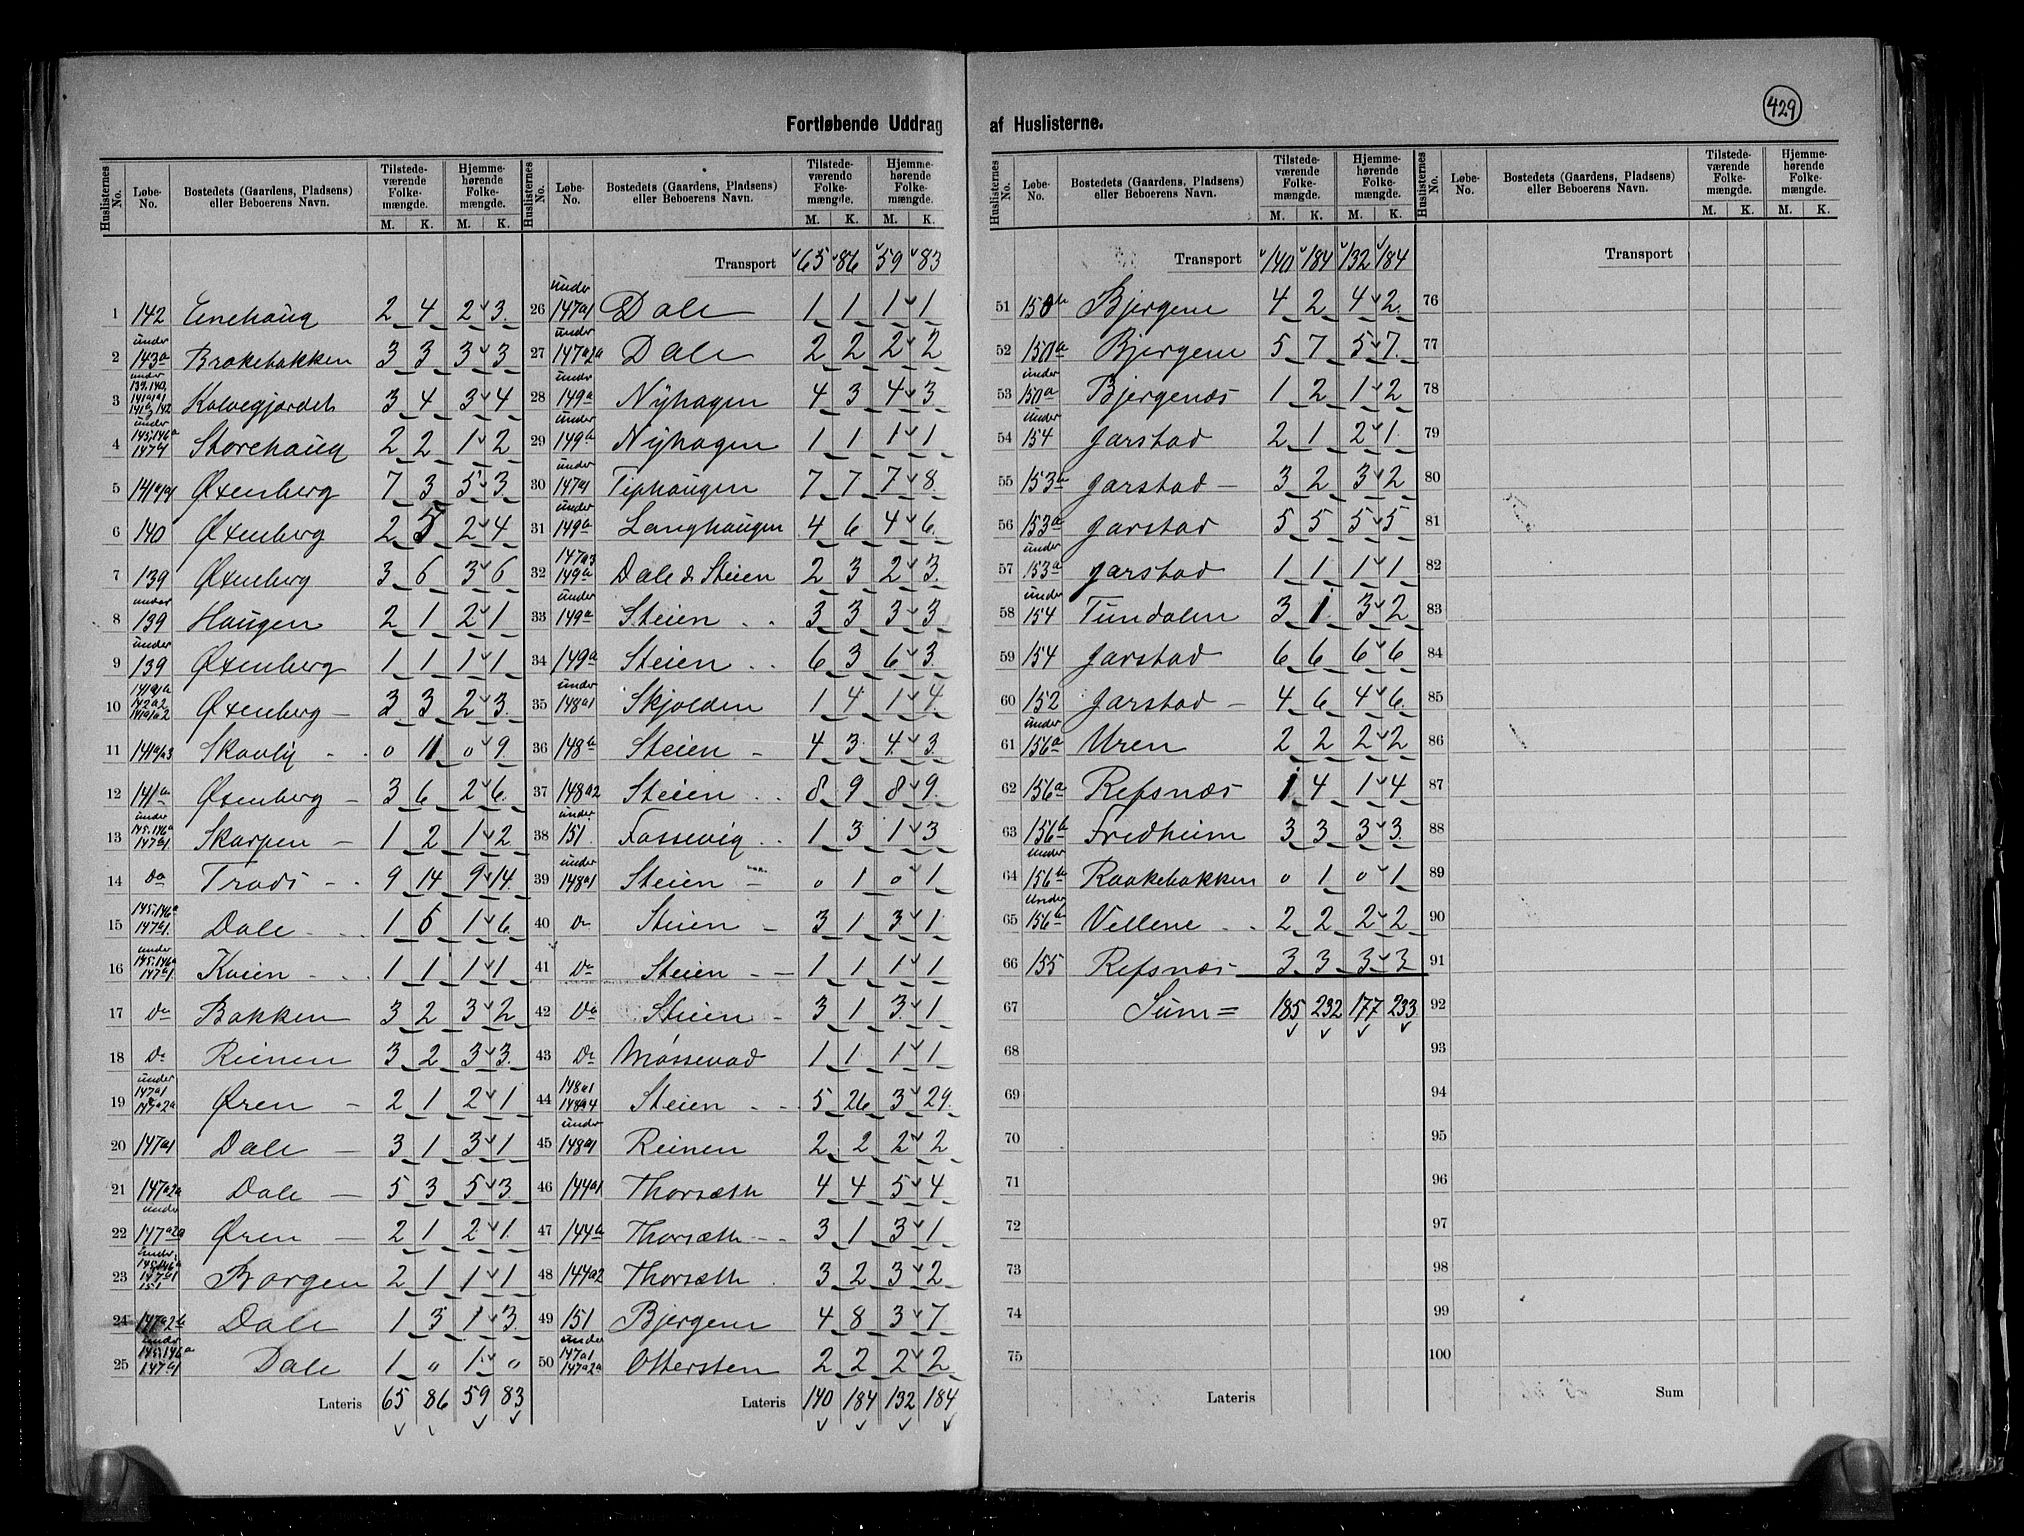 429
Fortløbende Uddrag af Huslisterne.
Huslisternes No. Løbe-No. Bostedets (Gaardens, Pladsens) eller Beboerens Navn. Tilstede-værende Folke-mængde. Hjemme-hørende Folke-mængde.
M. K. M. K.
1 142 Enehaug 2 4 2 3
2 under 143a Brakebakken 3 3 3 3
3 under 139, 140, 141a1 Kalvegjordet 3 4 3 4
4 under 145, 146a 147a1 Storehaug 2 2 1 2
5 Øxenberg 7 3 5 3
6 140 Øxenberg 2 5 2 4
7 139 Øxenberg 3 6 3 6
8 under 139 Haugen 2 1 2 1
9 under 139 Øxenberg 1 1 1 1
10 Øxenberg 3 3 2 3
11 Skovly 0 11 0 9
12 141a Øxenberg 3 6 2 6
13 under 145, 146a 147a1 Skarpen 1 2 1 2
14 Do Trods 9 14 9 14
15 145, 146a 147a1 Dale 1 6 1 6
16 under 145, 146a 147a1 Kvien 1 1 1 1
17 Do Bakken 3 2 3 2
18 Do Reinen 3 2 3 3
19 under 147a1 147a2a Øren 2 1 2 1
20 147a1 Dale 3 1 3 1
21 147a2a Dale 5 3 5 3
22 under 147a2a Øren 2 1 2 1
23 under 145, 146a 147a1 151 Borgen 2 1 1 1
24 147a2b Dale 1 3 1 3
25 under 145, 146a 147a1 Dale 1 0 1 0
Lateris 65 86 59 83
Transport 65 86 59 83
26 under 147a1 Dale 1 1 1 1
27 under 147a2a Dale 2 2 2 2
28 under 149a Nyhagen 4 3 4 3
29 under 149a Nyhagen 1 1 1 1
30 under 147a1 Tiphaugen 7 7 7 8
31 under 149a Langhaugen 4 6 4 6
32 147a3 149a Dale & Steien 2 3 2 3
33 under 149a Steien 3 3 3 3
34 149a Steien 6 3 6 3
35 under 148a1 Skjolden 1 4 1 4
36 148b Steien 4 3 4 3
37 148a2 Steien 8 9 8 9
38 under 151 Fossevig 1 3 1 3
39 under 148a1 Steien 0 1 0 1
40 Do Steien 3 1 3 1
41 Do Steien 1 1 1 1
42 Do Steien 3 1 3 1
43 Do Mossevad 1 1 1 1
44 148a1 148a4 Steien 5 26 3 29
45 under 148a1 Reinen 2 2 2 2
46 144a1 Thorsæth 4 4 5 4
47 144a Thorsæth 3 1 3 1
48 144a2 Thorsæth 3 2 3 2
49 151 Bjergene 4 8 3 7
50 under 147a1 147a2a Ottersten 2 2 2 2
Lateris 140 184 132 184
Transport 140 184 132 184
51 150b Bjergene 4 2 4 2
52 150a Bjergene 5 7 5 7
53 under 150a Bjergenæs 1 2 1 2
54 under 154 Jarstad 2 1 2 1
55 153b Jarstad 3 2 3 2
56 153a Jarstad 5 5 5 5
57 under 153a Jarstad 1 1 1 1
58 under 154 Tundalen 3 1 3 2
59 154 Jarstad 6 6 6 6
60 152 Jarstad 4 6 4 6
61 under 156a Uren 2 2 2 2
62 156a Refsnæs 1 4 1 4
63 156b Fredheim 3 3 3 3
64 under 156b Raakebakken 0 1 0 1
65 under 156b Vellene 2 2 2 2
66 155 Refsnæs 3 3 3 3
67 Sum = 185 232 177 233
68
69
70
71
72
73
74
75
Lateris
Transport
76
77
78
79
80
81
82
83
84
85
86
87
88
89
90
91
92
93
94
95
96
97
98
99
100
Sum